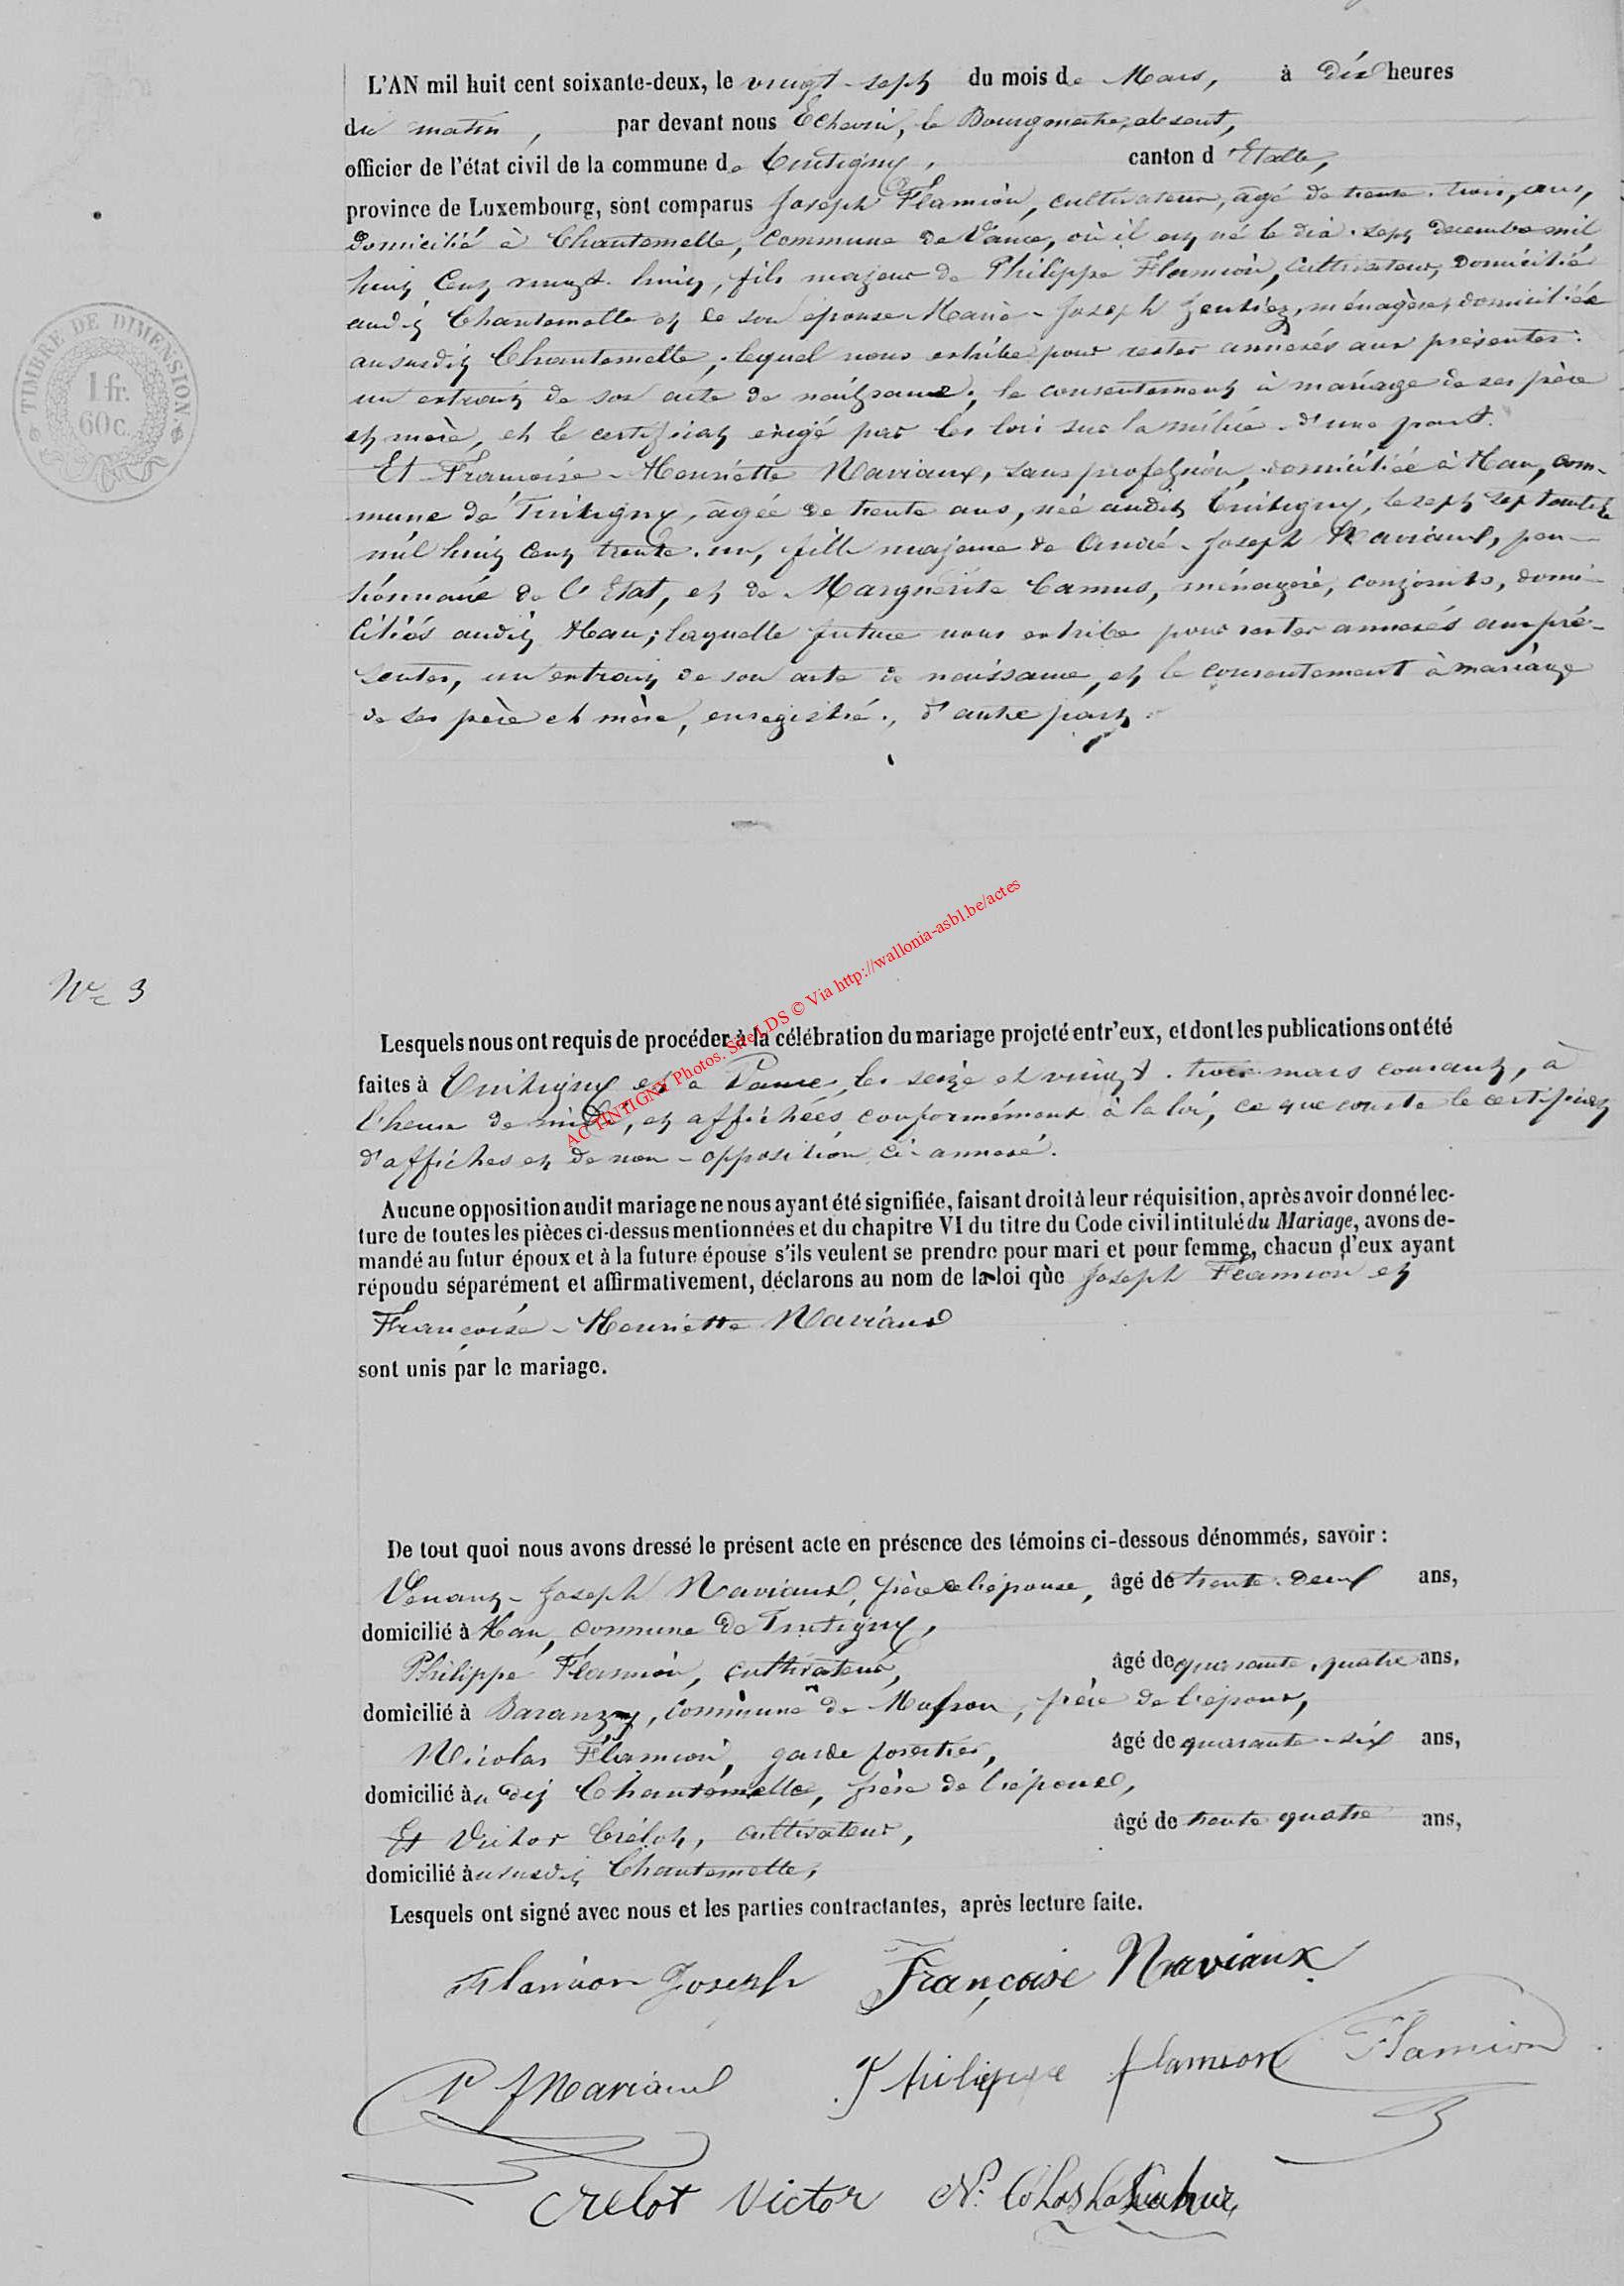 L'AN mil huit cent soixante-deux, le vingt-sept du mois de Mars, à Dix heures
du matin, par devant nous Echevin, le Bourgmestre absent,
officier de l'état civil de la commune de Tintigny, canton d'Etalle,
province de Luxembourg, sont comparus Joseph Flamion, cultivateur, âgé de trente-trois ans,
domicilié à Chantemelle, commune de Vance, où il est né le dix-sept décembre mil
huit cent vingt-huit, fils majeur de Philippe Flamion, cultivateur, domicilié
audit Chantemelle et de son épouse Marie-Joseph ménagère, domiciliée
au susdit Chantemelle, lequel nous exhibe pour rester annexés aux présentes:
un extrait de son acte de naissance, le consentement à mariage de ses père
et mère, et le certificat exigé par les lois sur la milice d'une part.
Et Françoise-Henriette Naviaux, sans profession, domiciliée à Han, com-
mune de Tintigny, âgée de trente ans, née audit Tintigny, le sept septembre
mil huit cent trente-un, fille majeure de André-Joseph Naviaux, pen-
sionnaire de l'Etat, et de Marguerite Camus, ménagère, conjoints, domi-
ciliés audit Han; laquelle future nous exhibe pour rester annexés aux pré-
sentes, un extrait de son acte de naissance, et le consentement à mariage
de ses père et mère, enregistré, d'autre part.
TIMBRE DE DIMENSION
1 fr.
60 c.
AC TINTIGNY Photos. Site LDS © Via http://wallonia-asbl.be/actes
N° 3
Lesquels nous ont requis de procéder à la célébration du mariage projeté entr'eux, et dont les publications ont été
faites à Tintigny et à Vance, les seize et vingt-trois mars courant, à
l'heure de midi, et affichées conformément à la loi, ce que conste le certificat
d'affiches et de non-opposition ci-annexé.
Aucune opposition audit mariage ne nous ayant été signifiée, faisant droit à leur réquisition, après avoir donné lec-
ture de toutes les pièces ci-dessus mentionnées et du chapitre VI du titre du Code civil intitulé du Mariage, avons de-
mandé au futur époux et à la future épouse s'ils veulent se prendre pour mari et pour femme, chacun d'eux ayant
répondu séparément et affirmativement, déclarons au nom de la loi que Joseph Flamion et
Françoise-Henriette Naviaux
sont unis par le mariage.
De tout quoi nous avons dressé le présent acte en présence des témoins ci-dessous dénommés, savoir:
Venant-Joseph Naviaux, frère de l'épouse, âgé de trente-deux ans,
domicilié à Han, commune de Tintigny,
Philippe Flamion, cultivateur, âgé de quarante-quatre ans,
domicilié à Baranzy, commune de Musson, frère de l'époux,
Nicolas Flamion, garde forestier, âgé de quarante-six ans,
domicilié audit Chantemelle, frère de l'époux,
Et Victor Crélot, cultivateur, âgé de trente quatre ans,
domicilié au susdit Chantemelle,
Lesquels ont signé avec nous et les parties contractantes, après lecture faite.
Flamion Joseph Françoise Naviaux
V J Naviaux Philippe flamion Flamion
Crelot Victor N.